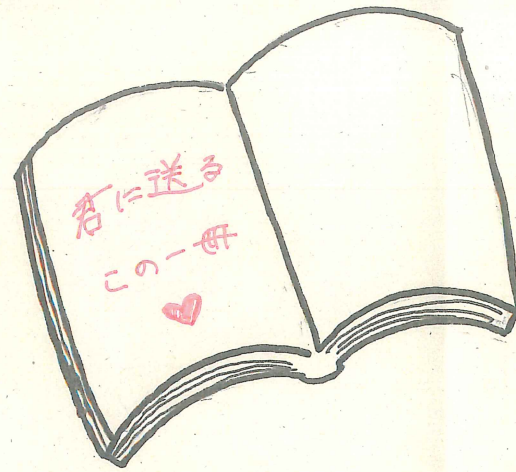 君に送る
この一冊